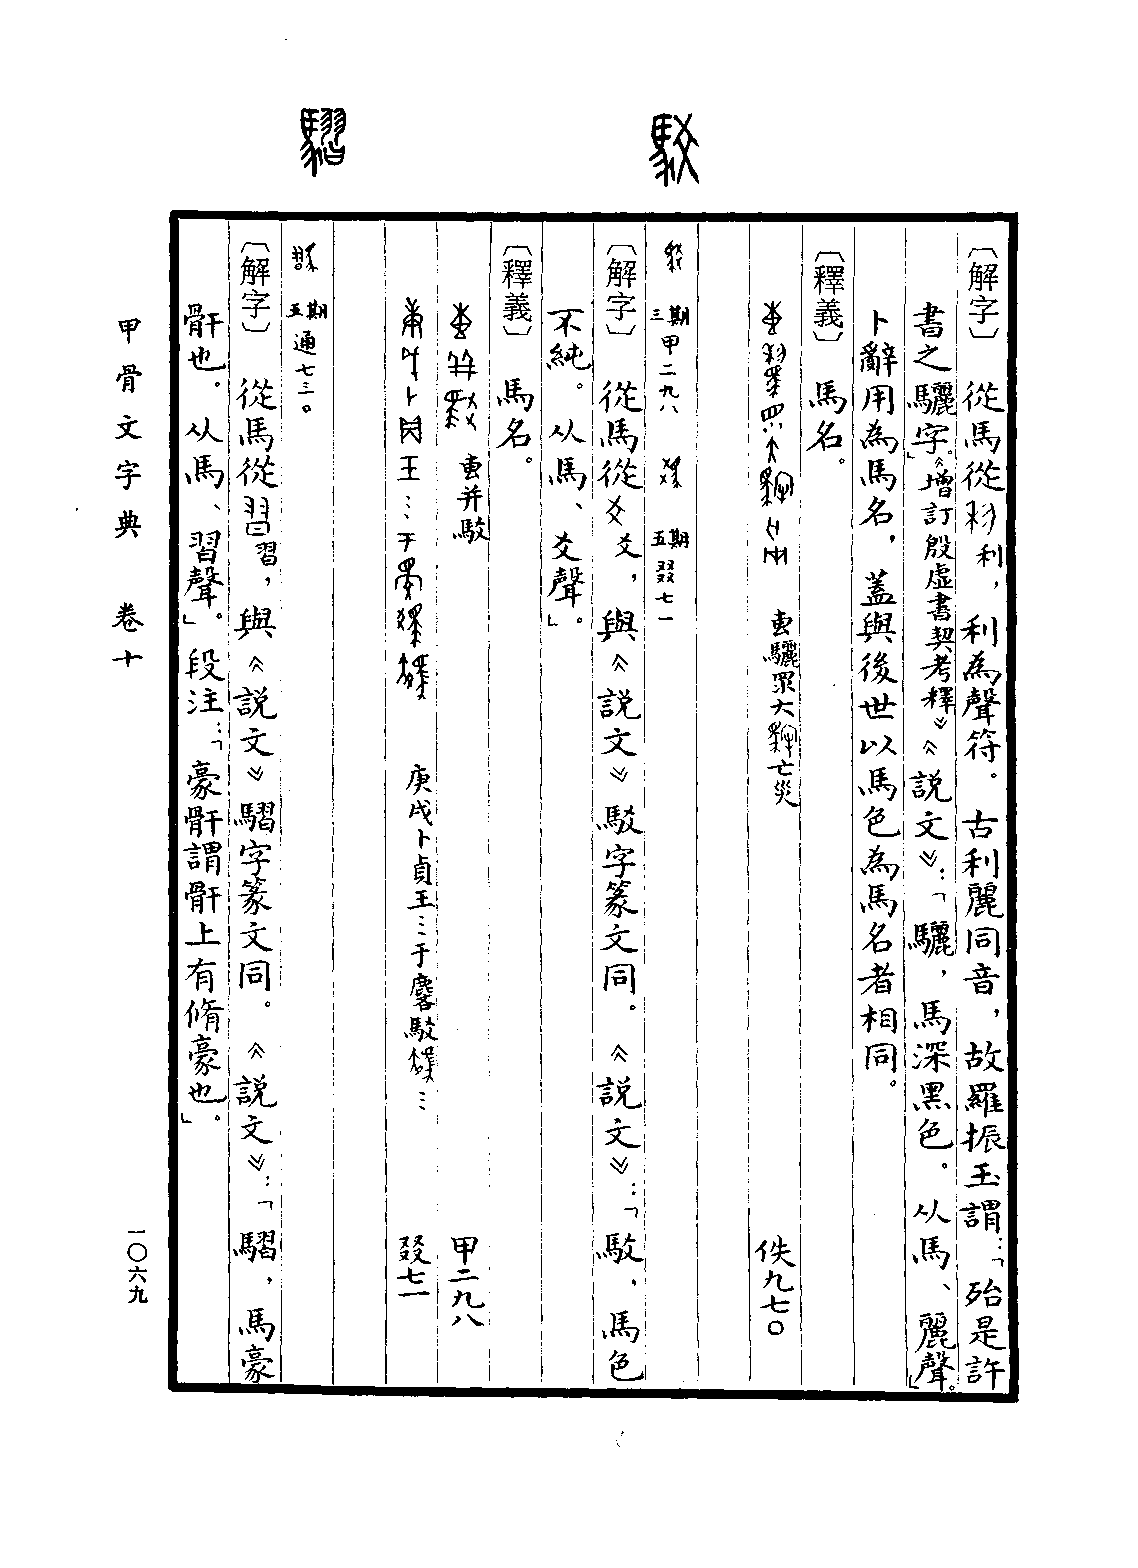 駁
騽
〔解字〕從馬從利，利為聲符。古利麗同音，故羅振玉謂：「殆是許
書之驪字。」《增訂殷虛書契考釋》《說文》：「驪，馬深黑色。从馬、麗聲。」
卜辭用為馬名，蓋與後世以馬色為馬名者相同。
〔釋義〕馬名。
叀驪眔大亡災 佚九七〇
三期 甲二九八 五期 叕七一
〔解字〕從馬從爻，與《說文》駁字篆文同。《說文》：「駁，馬色
不純。从馬、爻聲。」
〔釋義〕馬名。
叀并駁 甲二九八
庚戌卜貞王⋮于駁⋮ 叕七一
五期 通七三〇
〔解字〕從馬從習，與《說文》騽字篆文同。《說文》：「騽，馬豪
骭也。从馬、習聲。」段注：「豪骭謂骭上有脩豪也。」
甲骨文字典 卷十
一〇六九